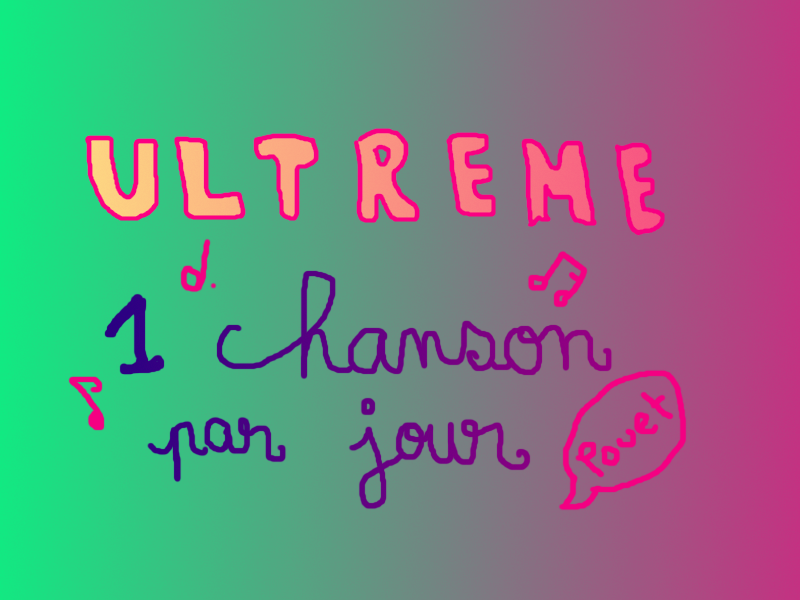 ULTREME
1 chanson
par jour
Pouet